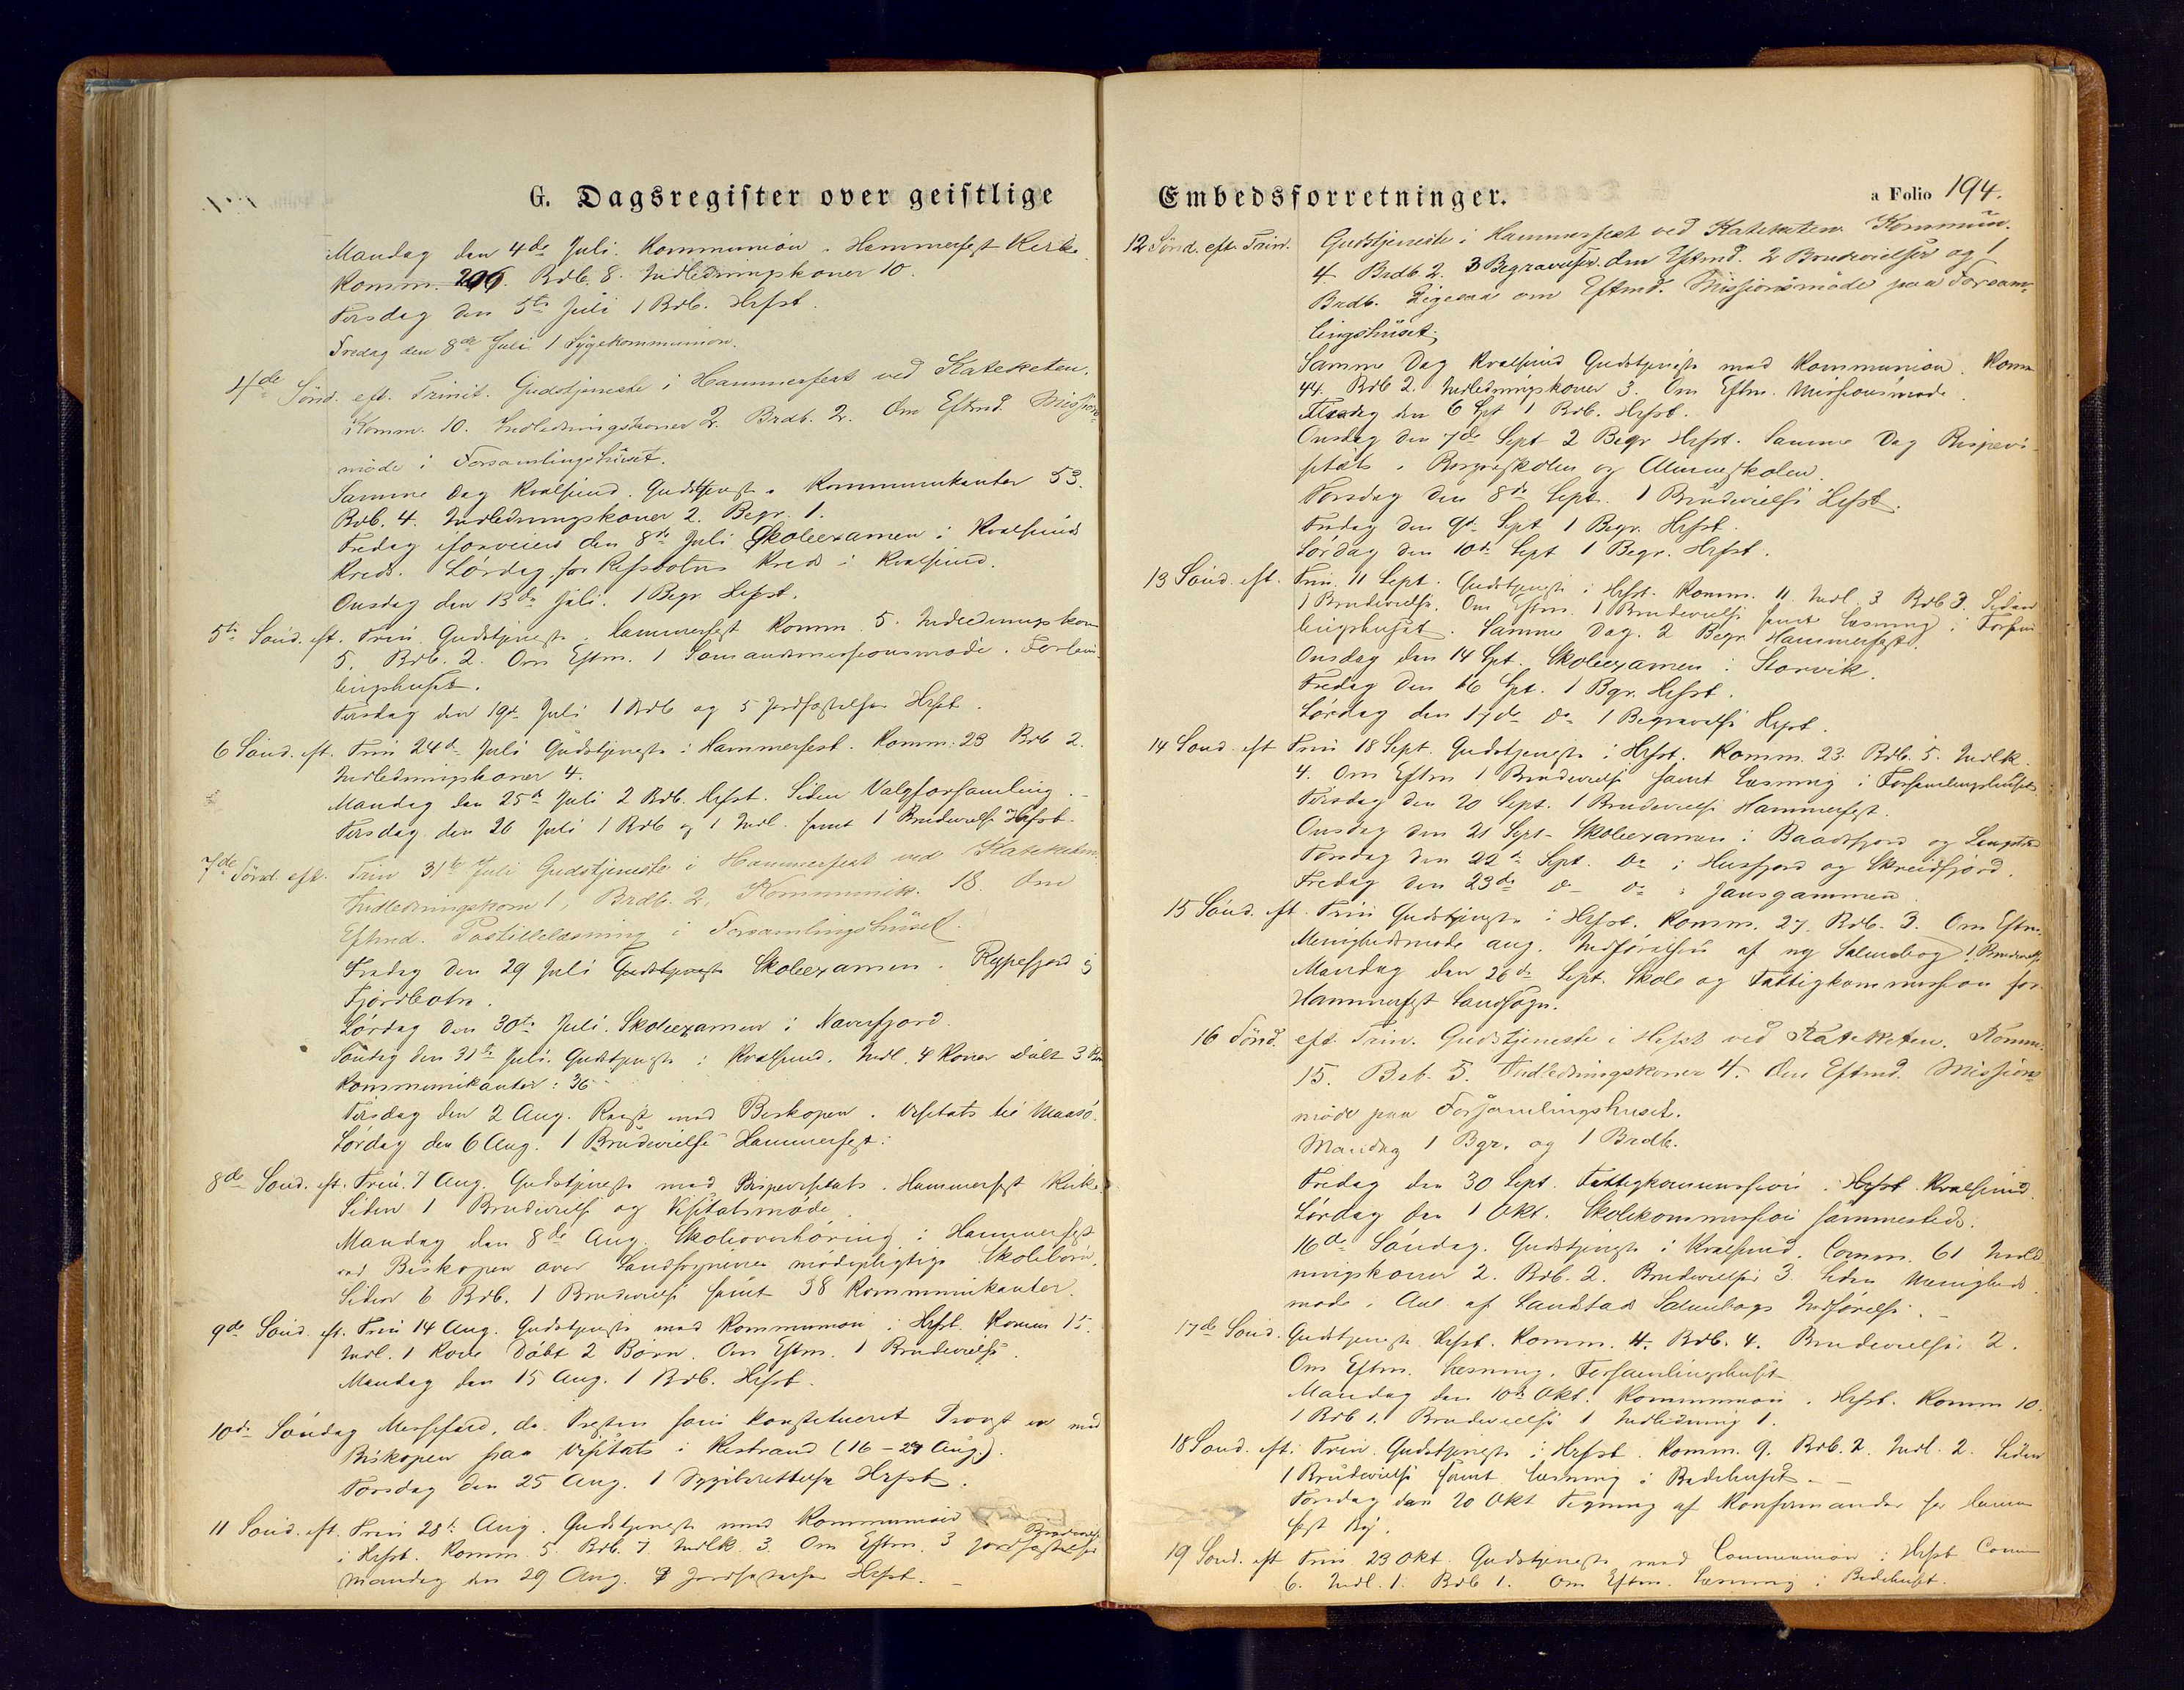 G. Dagsregister over geistlige
Mandag den 4de Juli. Kommunion i Hammerfest Kirke.
Komm. 206. Brdb. 8. Indledningskoner 10.
Tirsdag den 5te Juli 1 Brdb. Hrfst.
Fredag den 8de Juli 1 Sygekommunion.
4de Sönd. eft. Trinit. Gudstjeneste i Hammerfest ved Kateketen.
Komm. 10. Indledningskoner 2. Brdb. 2. Om Eftmd. Missions-
möde i Forsamlingshuset.
Samme Dag Kvalsund. Gudstjeneste. Kommunikanter 53.
Brdb. 4. Indledningskoner 2. Begr. 1.
Fredag iforveien den 8de Juli Skoleexamen i Kvalsunds
Kreds. Lördag for Refsbotns Kreds i Kvalsund.
Onsdag den 13de Juli. 1 Begr. Hrfst.
5te Sönd. eft. Trin. Gudstjeneste i Hammerfest Komm. 5. Indledningskon
5. Brdb. 2. Om Eftm. 1 Samt
lingshuset.
Tirsdag den 19de Juli 1 Brdb og 5 Jordfæstelser Hrfst.
6 Sönd. eft. Trin 24de Juli Gudstjeneste i Hammerfest. Komm: 23 Brdb 2.
Indledningskoner 4.
Mandag den 25de Juli 2 Brdb. Hrfst. Siden Valgforsamling. –
Tirsdag den 26 Juli 1 Brdb og 1 Indl. samt 1 Brudevielse Hrfst.
7de Sönd. eft. Trin 31te Juli Gudstjeneste i Hammerfest ved Kateketen.
Indledningskone 1, Brdb. 2, Kommunik. 18. Om
Eftmd. Postillelæsning i Forsamlingshuset.
Fredag den 29 Juli Gudstjeneste Skoleexamen i Rypefjord og
Fjordbotn.
Lördag den 30te Juli. Skoleexamen i Naverfjord.
Söndag den 31te Juli. Gudstjeneste i Kvalsund. Indl. 4 Koner Döbt 3 Bö
Kommunikanter: 36
Tirsdag den 2 Aug. Reist med Biskopen i Visitats til Maasö.
Lördag den 6 Aug. 1 Brudevielse Hammerfest.
8de Sönd. eft. Trin. 7 Aug. Gudstjeneste med Bispevisitats i Hammerfest Kirke.
Siden 1 Brudevielse og Visitatsmöde.
Mandag den 8de Aug. Skoleoverhöring i Hammerfest
ved Biskopen over Landsognenes mödepligtige Skolebörn.
Siden 6 Brdb. 1 Brudevielse samt 38 Kommunikanter.
9de Sönd. eft. Trin 14 Aug. Gudstjeneste med Kommunion i Hrfst. Komm 15.
Indl. 1 Kone Döbt 2 Börn. Om Eftm. 1 Brudevielse.
Mandag den 15 Aug. 1 Brdb. Hrfst.
10de Söndag Messefald, da Presten som konstitueret Provst er med
Biskopen paa Visitats i Kistrand (16 – 27 Aug.).
Torsdag den 25 Aug. 1 Hrfst.
11 Sönd. eft. Trin 28de Aug. Gudstjeneste med Kommunion
i Hrfst. Komm. 5. Brdb. 7. Indlk. 3. Om Eftm. 3 Jordfæstelser
Mandag den 29 Aug. Jordfæstelse Hrfst. –
Embedsforretninger.
a Folio 194.
12 Sönd. eft. Trin. Gudstjeneste i Hammerfest ved Kateketen. Kommun.
4. Brdb 2. 3 Begravelser. Om Eftmd. 2 Brudevielser og 1
Brdb. Ligesaa om Eftmd. Missionsmöde paa Forsam-
lingshuset.
Samme Dag Kvalsund Gudstjeneste med Kommunion. Komm
44. Brdb 2. Indledningskoner 3. Om Eftm. Missionsmöde.
Tirsdag den 6 Spt 1 Brdb. Hrfst.
Onsdag den 7de Sept 2 Begr Hrfst. Samme Dag Bispevi-
sitats i Borgerskolen og Almueskolen.
Torsdag den 8de Sept. 1 Brudevielse Hrfst.
Fredag den 9de Sept 1 Begr. Hrfst.
Lördag den 10de Sept 1 Begr. Hrfst.
13 Sönd. eft. Trin. 11 Sept. Gudstjeneste i Hrfst. Komm. 11. Indl. 3 Brdb 3. Siden
1 Brudevielse. Om Eftm. 1 Brudevielse samt Læsning i Forsam
lingshuset. Samme Dag. 2 Begr. Hammerfest.
Onsdag den 14 Spt. Skoleexamen i Storvik.
Fredag den 16 Spt. 1 Bgr. Hrfst.
Lördag den 17de Do 1 Begravelse Hrfst.
14 Sönd. eft Trin 18 Sept. Gudstjeneste i Hrfst. Komm. 23. Brdb. 5. Indlk.
4. Om Eftm 1 Brudevielse samt Læsning i Forsamlingshuset.
Tirsdag den 20 Sept. 1 Brudevielse Hammerfest.
Onsdag den 21 Sept. Skoleexamen i Baadsfjord og
Torsdag den 22de Sept. Do i Husfjord og Skreidfjord.
Fredag den 23de Do Do i Jansgammen.
15 Sönd. eft. Trin Gudstjeneste i Hrfst. Komm. 27. Brdb. 3. Om Eftm.
Menighedsmöde ang. Indförelsen af ny Salmebog 1 Brudevielse.
Mandag den 26de Sept. Skole og Fattigkommission for
Hammerfest Landsogn.
16 Sönd. eft. Trin. Gudstjeneste i Hrfst ved Kateketen. Komm.
15. Brb. 5. Indledningskoner 4. Om Eftmd. Missions-
möde paa Forsamlingshuset.
Mandag 1 Bgr. og 1 Brdb.
Fredag den 30 Sept. Fattigkommission i Hrfst Kvalsund.
Lördag den 1 Okt. Skolekommission sammesteds.
16de Söndag. Gudstjeneste i Kvalsund. Comm. 61 Indled
ningskoner 2. Brdb. 2. Brudevielser 3. Siden Menigheds
möde i Anl. af Landstads Salmebogs Indförelse. –
17de Sönd. Gudstjeneste Hrfst. Komm. 4. Brdb. 4. Brudevielser 2.
Om Eftm. Læsning i Forsamlingshuset
Mandag den 10de Okt. Kommunion i Hrfst. Komm 10.
1 Brdb 1. Brudevielse 1 Indledning 1.
18 Sönd. eft. Trin. Gudstjeneste i Hrfst. Komm. 9. Brdb. 2. Indl. 2. Siden
1 Brudevielse samt Læsning i Bedehuset. –
Torsdag den 20 Okt Tegning af Konfirmander for Hammer
fest By.
19 Sönd. eft Trin 23 Okt. Gudstjeneste med Communion i Hrfst Comm
6. Indl. 1. Brdb 1. Om Eftm. Læsning i Bedehuset.